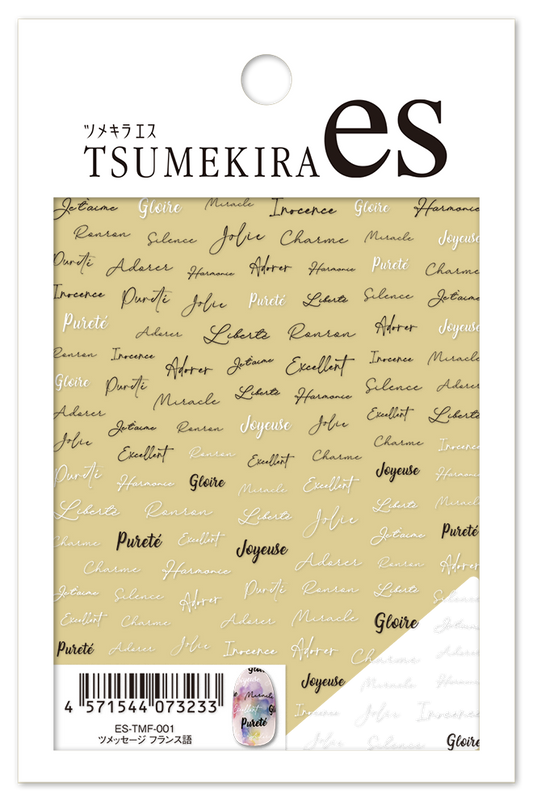 ツメキラ エス
TSUMEKIRA es
Je t'aime Gloire Miracle Inocence Gloire Harmonie
Ronron Silence Jolie Charme Miracle Joyeuse
Pureté Adorer Harmonie Adorer Harmonie Pureté Charme
Inocence Pureté Jolie Pureté Liberté Silence Je t'aime
Pureté Adorer Liberté Ronron Adorer Joyeuse
Ronron Inocence Adorer Je t'aime Excellent Inocence Miracle
Gloire Pureté Miracle Liberté Harmonie Silence Adorer
Adorer Je t'aime Ronron Joyeuse Jolie Excellent Liberté
Jolie Excellent Ronron Excellent Charme Charme Inocence
Pureté Harmonie Gloire Miracle Excellent Joyeuse Harmonie
Liberté Ronron Liberté Jolie Liberté Silence
Charme Pureté Excellent Joyeuse Je t'aime Pureté
Charme Harmonie Adorer Charme Adorer
Je t'aime Silence Adorer Pureté Ronron Liberté Silence
Excellent Charme Adorer Miracle Gloire Je t'aime
Pureté Adorer Jolie Inocence Adorer Charme
Joyeuse Miracle Inocence
Inocence Jolie Inocence
Gloire
4 571544 073233
ES-TMF-001
ツメッセージ フランス語
Gloire
Joyeuse
Miracle
Excellent
Pureté